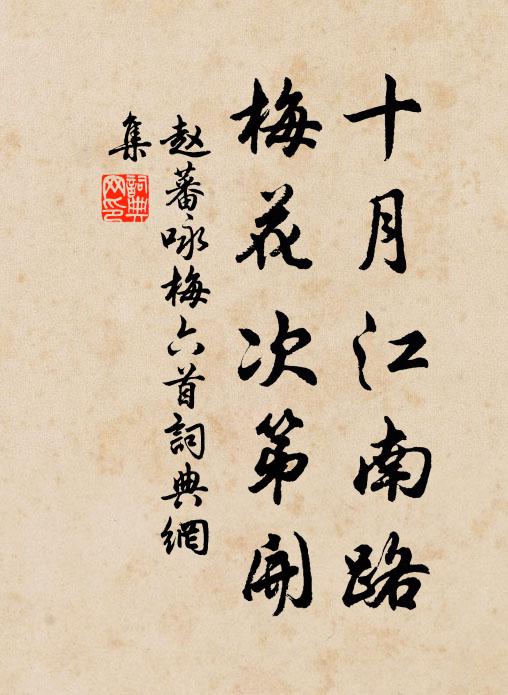 十月江南路
梅花次第開
赵蕃咏梅六首詞典網
集
詞典
网印